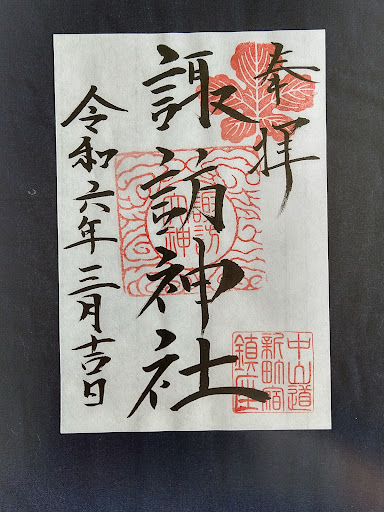 奉拝
諏訪神社
令和六年三月吉日
諏訪
神
中山道
新町宿
鎮座